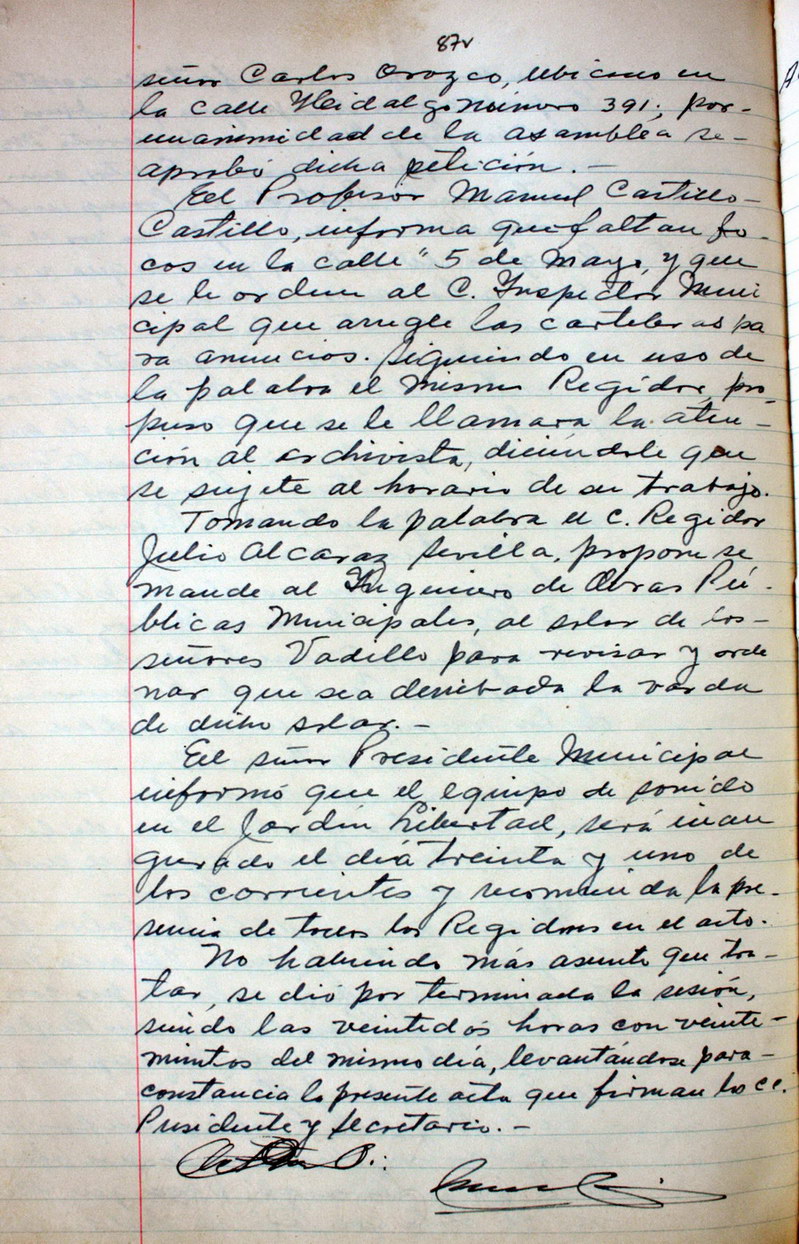 87v
señor Carlos Orozco, ubicado en
la calle Hidalgo número 391; por-
unanimidad de la asamblea se-
aprobó dicha petición.-
El Profesor Manuel Castillo-
Castillo, informa que faltan fo-
cos en la calle "5 de Mayo, y que
se le ordene al C. Inspector Muni
cipal que arregle las carteleras pa
ra anuncios. Siguiendo en uso de
la palabra el mismo Regidor, pro-
puso que se le llamara la aten-
ción al archivista, diciéndole que
se sujete al horario de su trabajo.
Tomando la palabra el C. Regidor
Julio Alcaraz Sevilla, propone se
mande al Ingeniero de Obras Pú-
blicas Municipales, al solar de los-
señores Vadillo para revisar y orde
nar que sea derribada la barda
de dicho solar.-
El señor Presidente Municipal
informó que el equipo de sonido
en el Jardín Libertad, será inau
gurado el día treinta y uno de
los corrientes y recomienda la pre-
sencia de todos los Regidores en el acto.
No habiendo más asunto que tra-
tar, se dió por terminada la sesión,
siendo las veintedós horas con veinte-
minutos del mismo día, levantándose para-
constancia la presente acta que firman los CC.
Presidente y Secretario.-